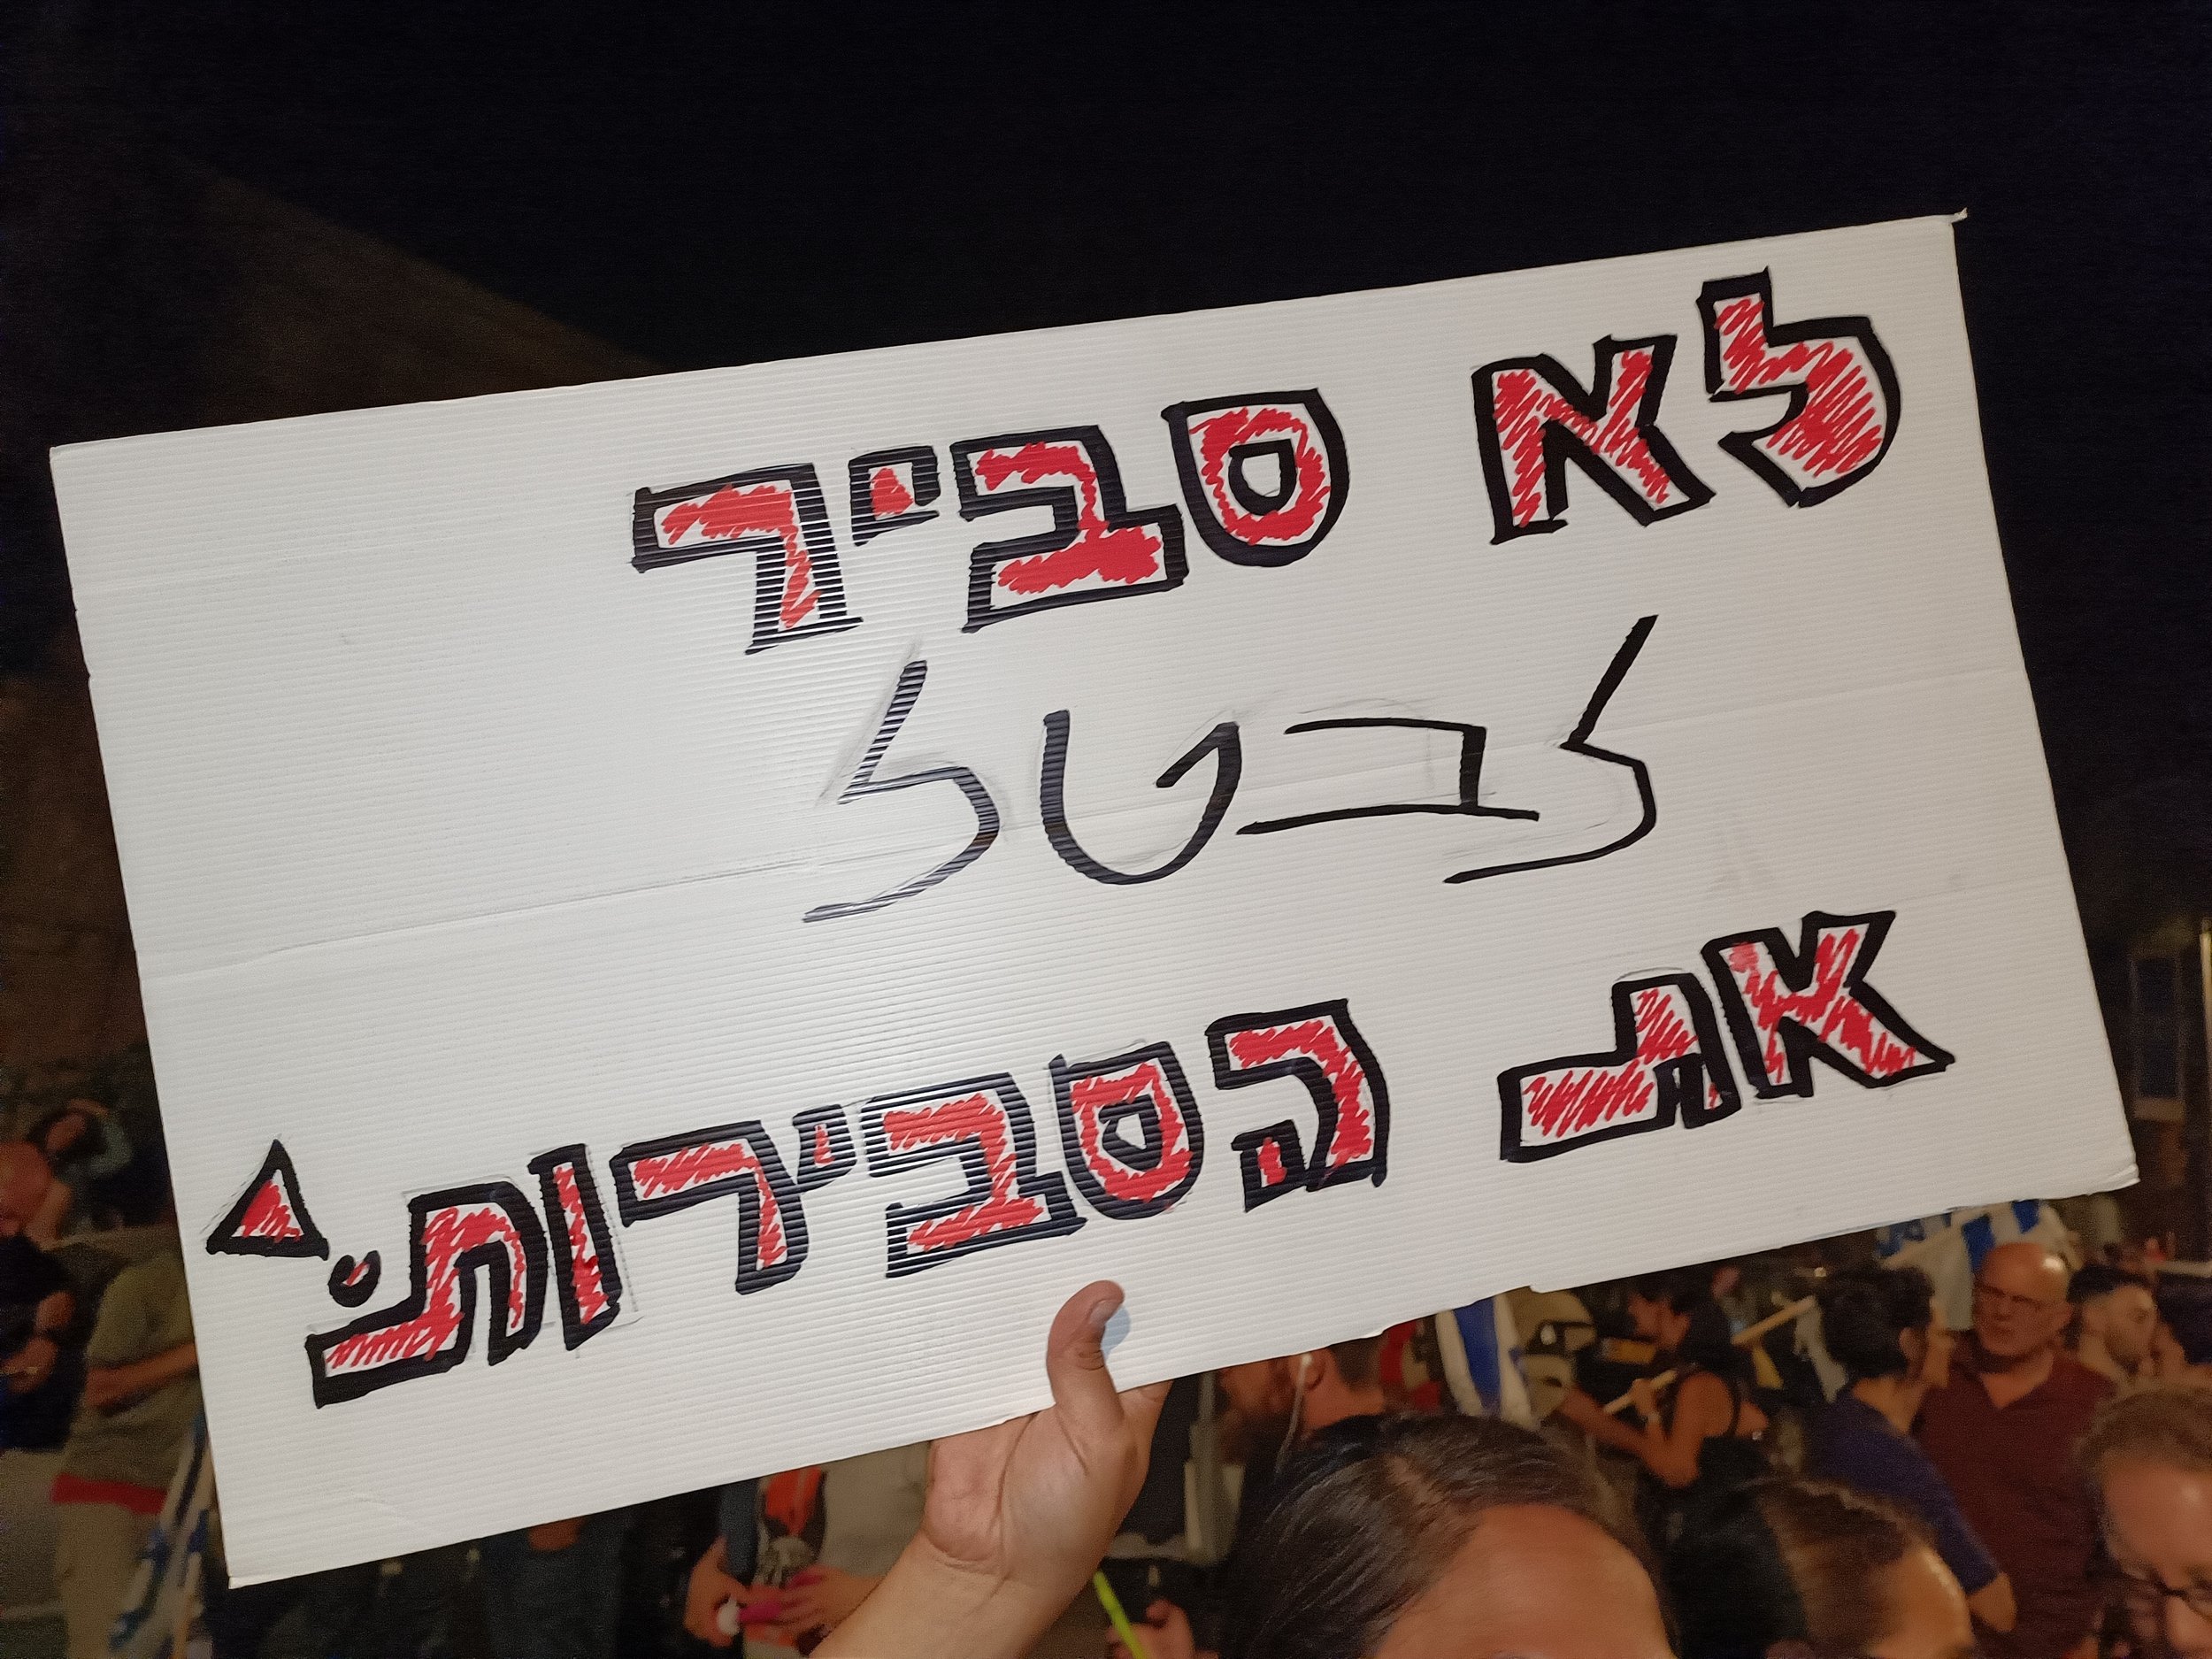 לא סביר
לבטל
את הסבירות!